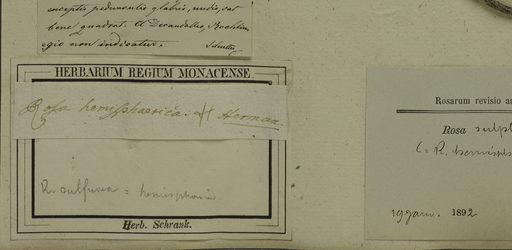 exceptis pedunculis glabris, nudis, cat
bene quadrat. A Decandollio, Boehlin
egio non indicatur.
HERBARIUM REGIUM MONACENSE
Rosa hemisphaerica. Herman.
R. sulfurea = hemisphaeric
Herb. Schrank.
Rosarum revisio au
Rosa sulph
R. hemisph
19 janv. 1892